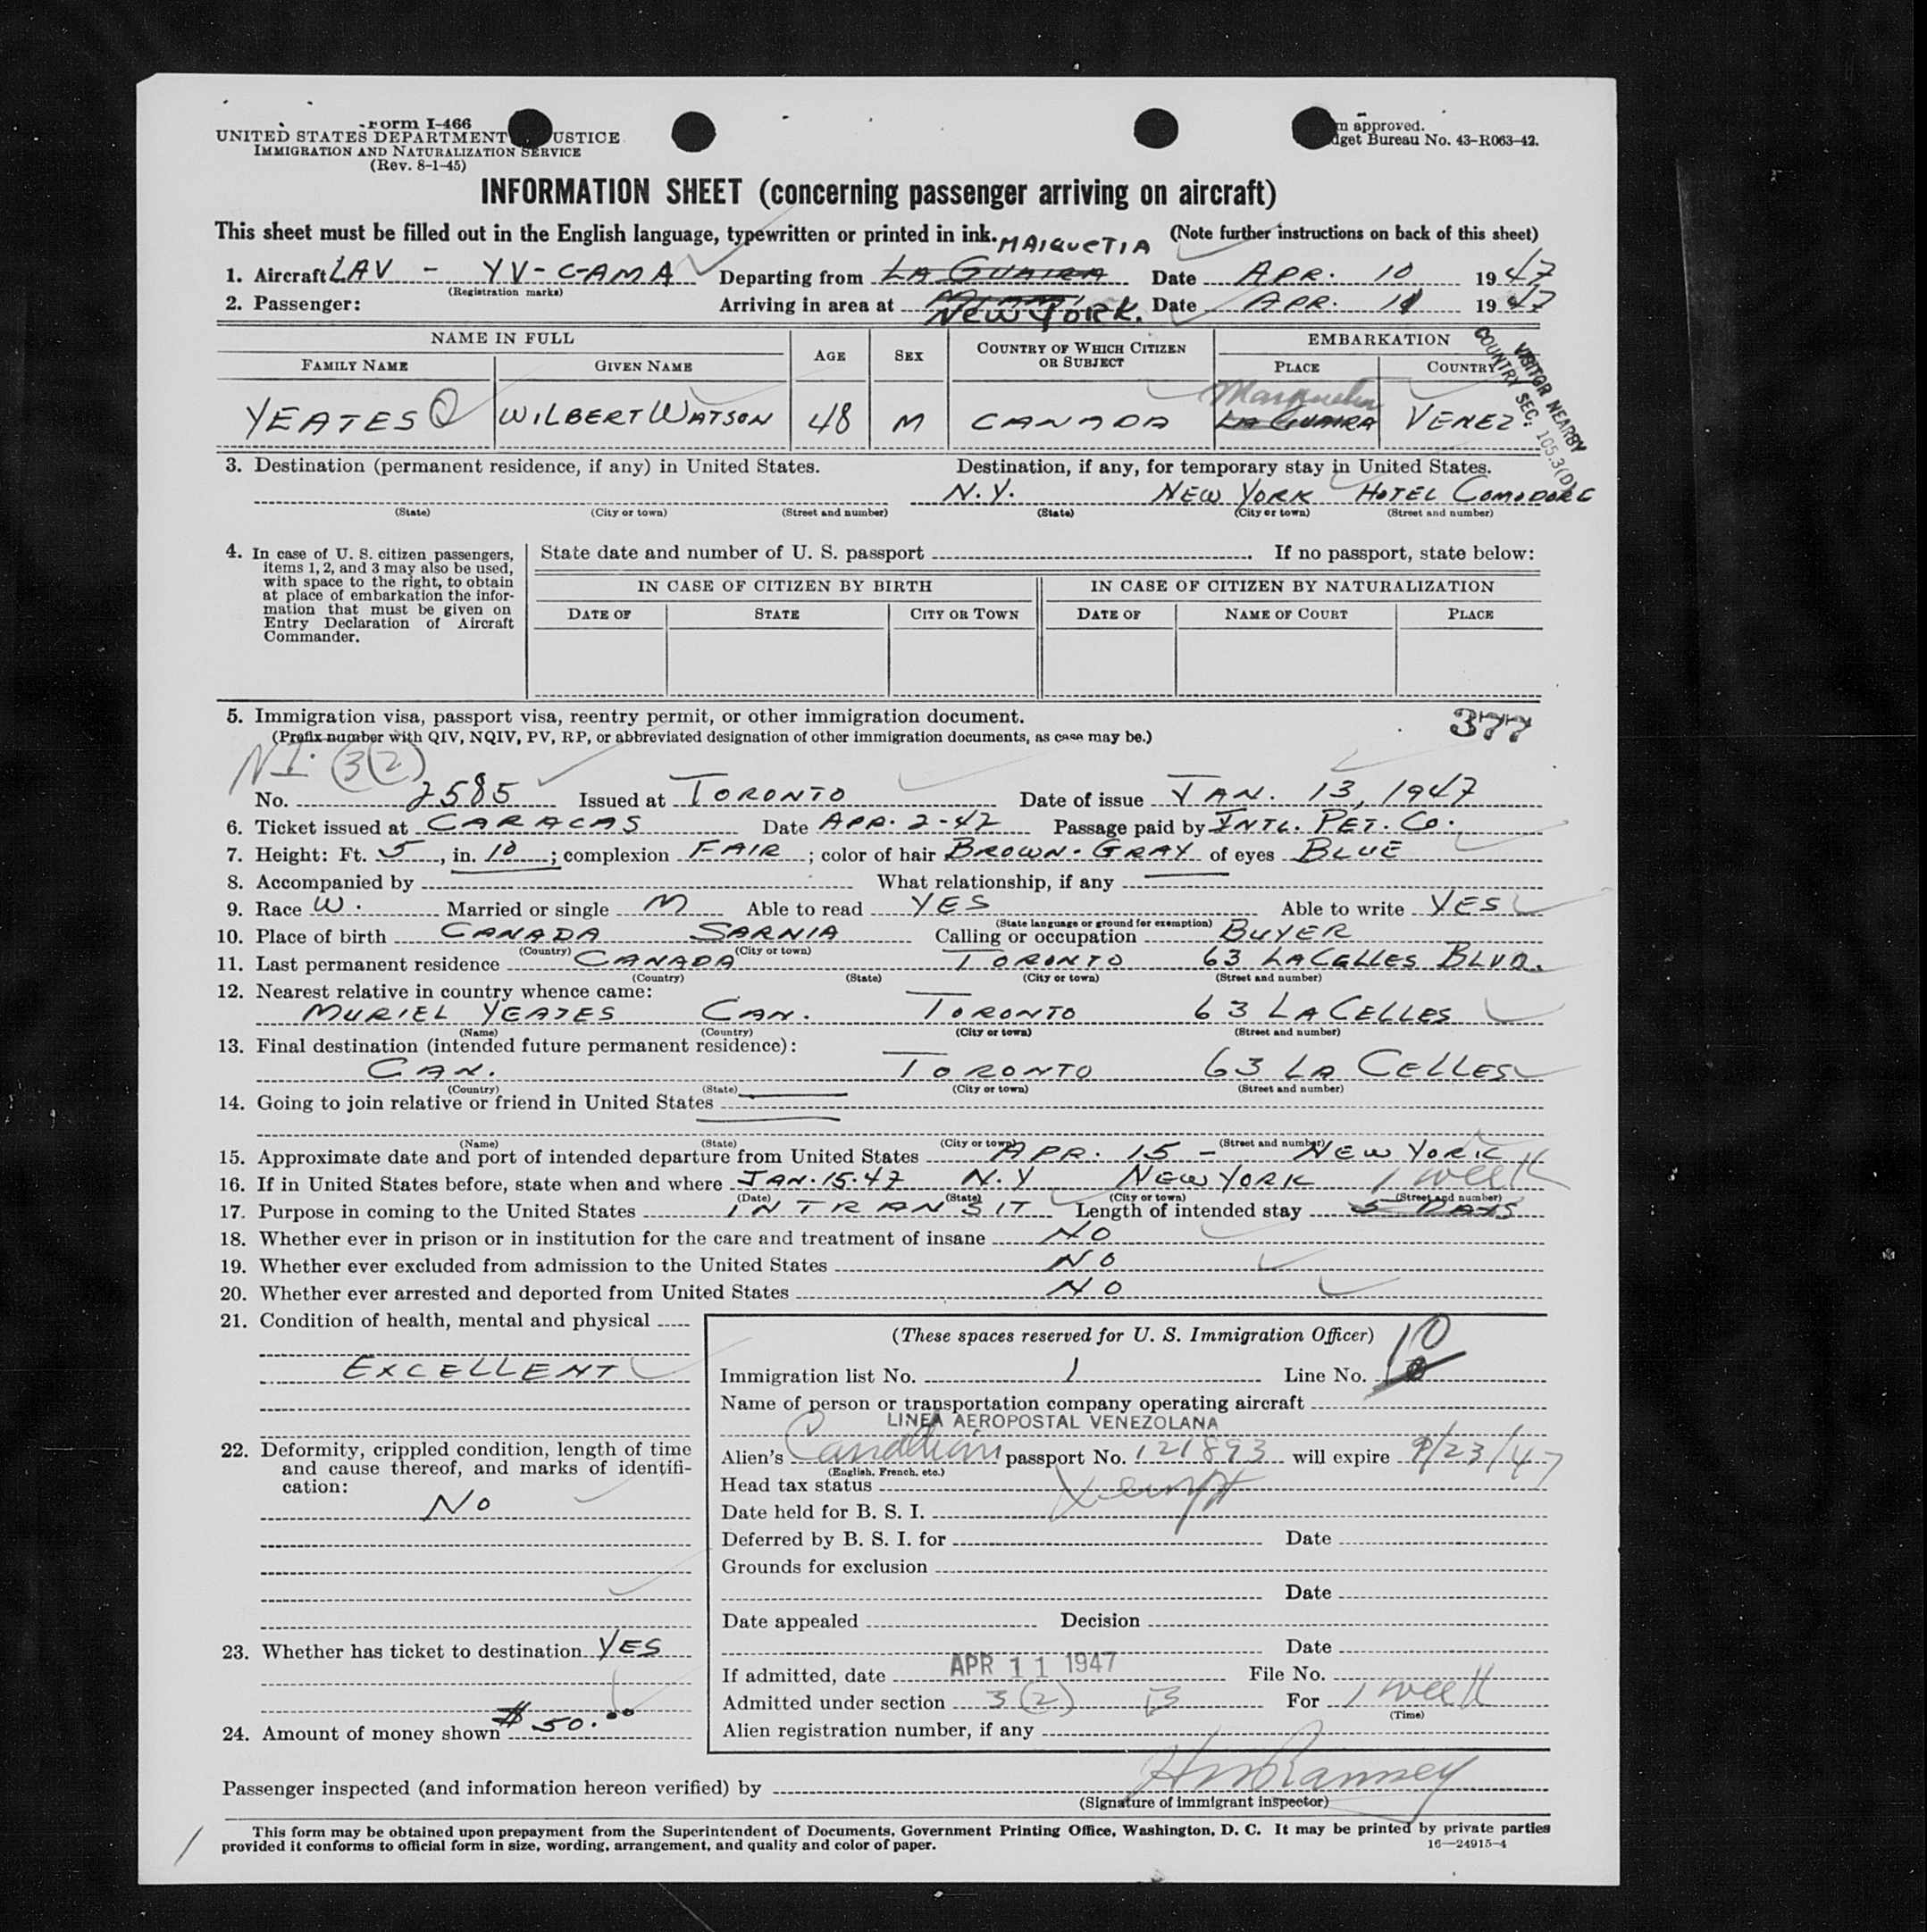 Form I-466
UNITED STATES DEPARTMENT USTICE
IMMIGRATION AND NATURALIZATION SERVICE
(Rev. 8-1-45)
m approved.
dget Bureau No. 43-R063-42.
INFORMATION SHEET (concerning passenger arriving on aircraft)
This sheet must be filled out in the English language, typewritten or printed in ink. (Note further instructions on back of this sheet)
MAIQUETIA
1. Aircraft LAV - YV-C-AMA Departing from LA GUAIRA Date APR. 10 1947
(Registration marks)
2. Passenger: Arriving in area at NEW YORK. Date APR. 11 1947
NAME IN FULL AGE SEX COUNTRY OF WHICH CITIZEN OR SUBJECT EMBARKATION
FAMILY NAME GIVEN NAME PLACE COUNTRY
VISITOR NEARBY
COUNTRY SEC. 105.3(D)
Maiquetia
YEATES WILBERT WATSON 48 M CANADA LA GUAIRA VENEZ.
3. Destination (permanent residence, if any) in United States. Destination, if any, for temporary stay in United States.
N.Y. NEW YORK HOTEL COMODORE
(State) (City or town) (Street and number) (State) (City or town) (Street and number)
4. In case of U. S. citizen passengers, items 1, 2, and 3 may also be used, with space to the right, to obtain at place of embarkation the information that must be given on Entry Declaration of Aircraft Commander.
State date and number of U. S. passport . If no passport, state below:
IN CASE OF CITIZEN BY BIRTH IN CASE OF CITIZEN BY NATURALIZATION
DATE OF STATE CITY OR TOWN DATE OF NAME OF COURT PLACE
5. Immigration visa, passport visa, reentry permit, or other immigration document. 377
(Prefix number with QIV, NQIV, PV, RP, or abbreviated designation of other immigration documents, as case may be.)
NI. (3(2)
No. 2585 Issued at TORONTO Date of issue JAN. 13, 1947
6. Ticket issued at CARACAS Date APR. 2-47 Passage paid by INTL. PET. CO.
7. Height: Ft. 5, in. 10; complexion FAIR; color of hair BROWN-GRAY of eyes BLUE
8. Accompanied by What relationship, if any
9. Race W. Married or single M Able to read YES Able to write YES
(State language or ground for exemption)
10. Place of birth CANADA SARNIA Calling or occupation BUYER
(Country) (City or town)
11. Last permanent residence CANADA TORONTO 63 LACELLES BLVD.
(Country) (State) (City or town) (Street and number)
12. Nearest relative in country whence came:
MURIEL YEATES CAN. TORONTO 63 LACELLES
(Name) (Country) (City or town) (Street and number)
13. Final destination (intended future permanent residence):
CAN. TORONTO 63 LA CELLES
(Country) (State) (City or town) (Street and number)
14. Going to join relative or friend in United States
(Name) (State) (City or town) (Street and number)
15. Approximate date and port of intended departure from United States APR. 15 - NEW YORK
16. If in United States before, state when and where JAN. 15. 47 N.Y NEW YORK
(Date) (State) (City or town) (Street and number)
1 week
17. Purpose in coming to the United States IN TRANSIT Length of intended stay 5 DAYS
18. Whether ever in prison or in institution for the care and treatment of insane NO
19. Whether ever excluded from admission to the United States NO
20. Whether ever arrested and deported from United States NO
21. Condition of health, mental and physical
EXCELLENT
22. Deformity, crippled condition, length of time and cause thereof, and marks of identification:
NO
23. Whether has ticket to destination YES
24. Amount of money shown $50.00
(These spaces reserved for U. S. Immigration Officer)
Immigration list No. 1 Line No. 10
Name of person or transportation company operating aircraft
LINEA AEROPOSTAL VENEZOLANA
Alien's Canadian passport No. 121893 will expire 9/23/47
(English, French, etc.)
Head tax status Xempt
Date held for B. S. I.
Deferred by B. S. I. for Date
Grounds for exclusion
Date
Date appealed Decision
Date
If admitted, date APR 11 1947 File No.
Admitted under section 3(2) B For 1 week
(Time)
Alien registration number, if any
Passenger inspected (and information hereon verified) by HW Ranney
(Signature of immigrant inspector)
This form may be obtained upon prepayment from the Superintendent of Documents, Government Printing Office, Washington, D. C. It may be printed by private parties
provided it conforms to official form in size, wording, arrangement, and quality and color of paper. 16—24915-4